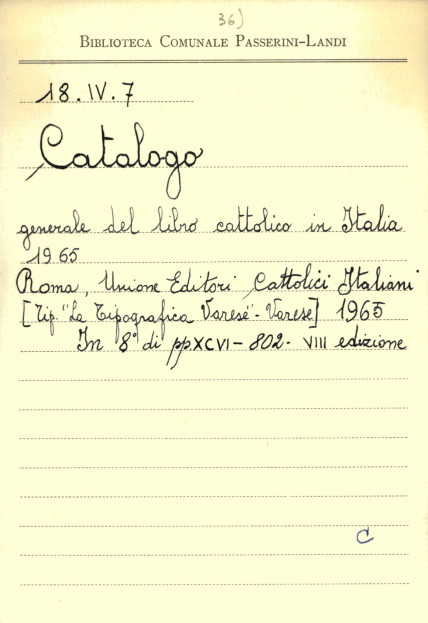 36)
BIBLIOTECA COMUNALE PASSERINI-LANDI
18.IV.7
Catalogo
generale del libro cattolico in Italia
1965
Roma, Unione Editori Cattolici Italiani
[Tip. "La Tipografica Varese" - Varese] 1965
In 8° di pp. XCVI - 802 - VIII edizione
C